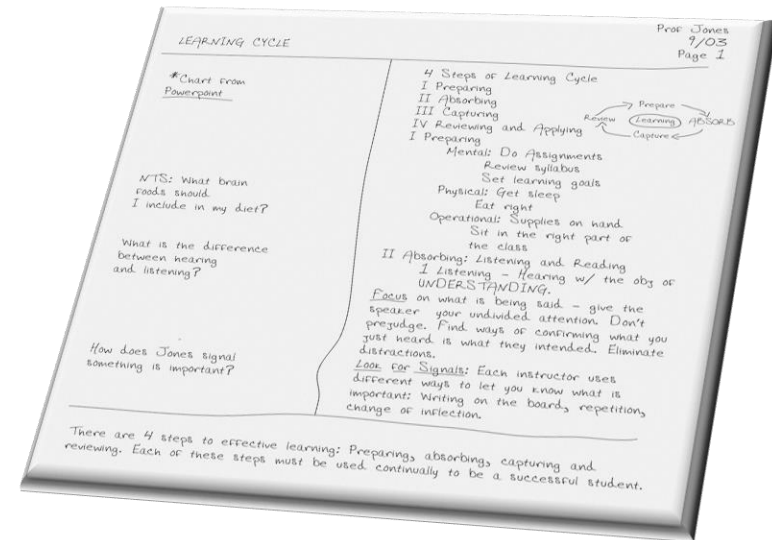 LEARNING CYCLE
Prof Jones
9/03
Page 1
*Chart from
Powerpoint
NTS: What brain
foods should
I include in my diet?
What is the difference
between hearing
and listening?
How does Jones signal
something is important?
4 Steps of Learning Cycle
I Preparing
II Absorbing
III Capturing
IV Reviewing and Applying
Prepare
Review Learning ABSORB
Capture
I Preparing
Mental: Do Assignments
Review syllabus
Set learning goals
Physical: Get sleep
Eat right
Operational: Supplies on hand
Sit in the right part of
the class
II Absorbing: Listening and Reading
1 Listening - Hearing w/ the obj of
UNDERSTANDING.
Focus on what is being said - give the
speaker your undivided attention. Don't
prejudge. Find ways of confirming what you
just heard is what they intended. Eliminate
distractions.
Look for Signals: Each instructor uses
different ways to let you know what is
important: Writing on the board, repetition,
change of inflection.
There are 4 steps to effective learning: Preparing, absorbing, capturing and
reviewing. Each of these steps must be used continually to be a successful student.